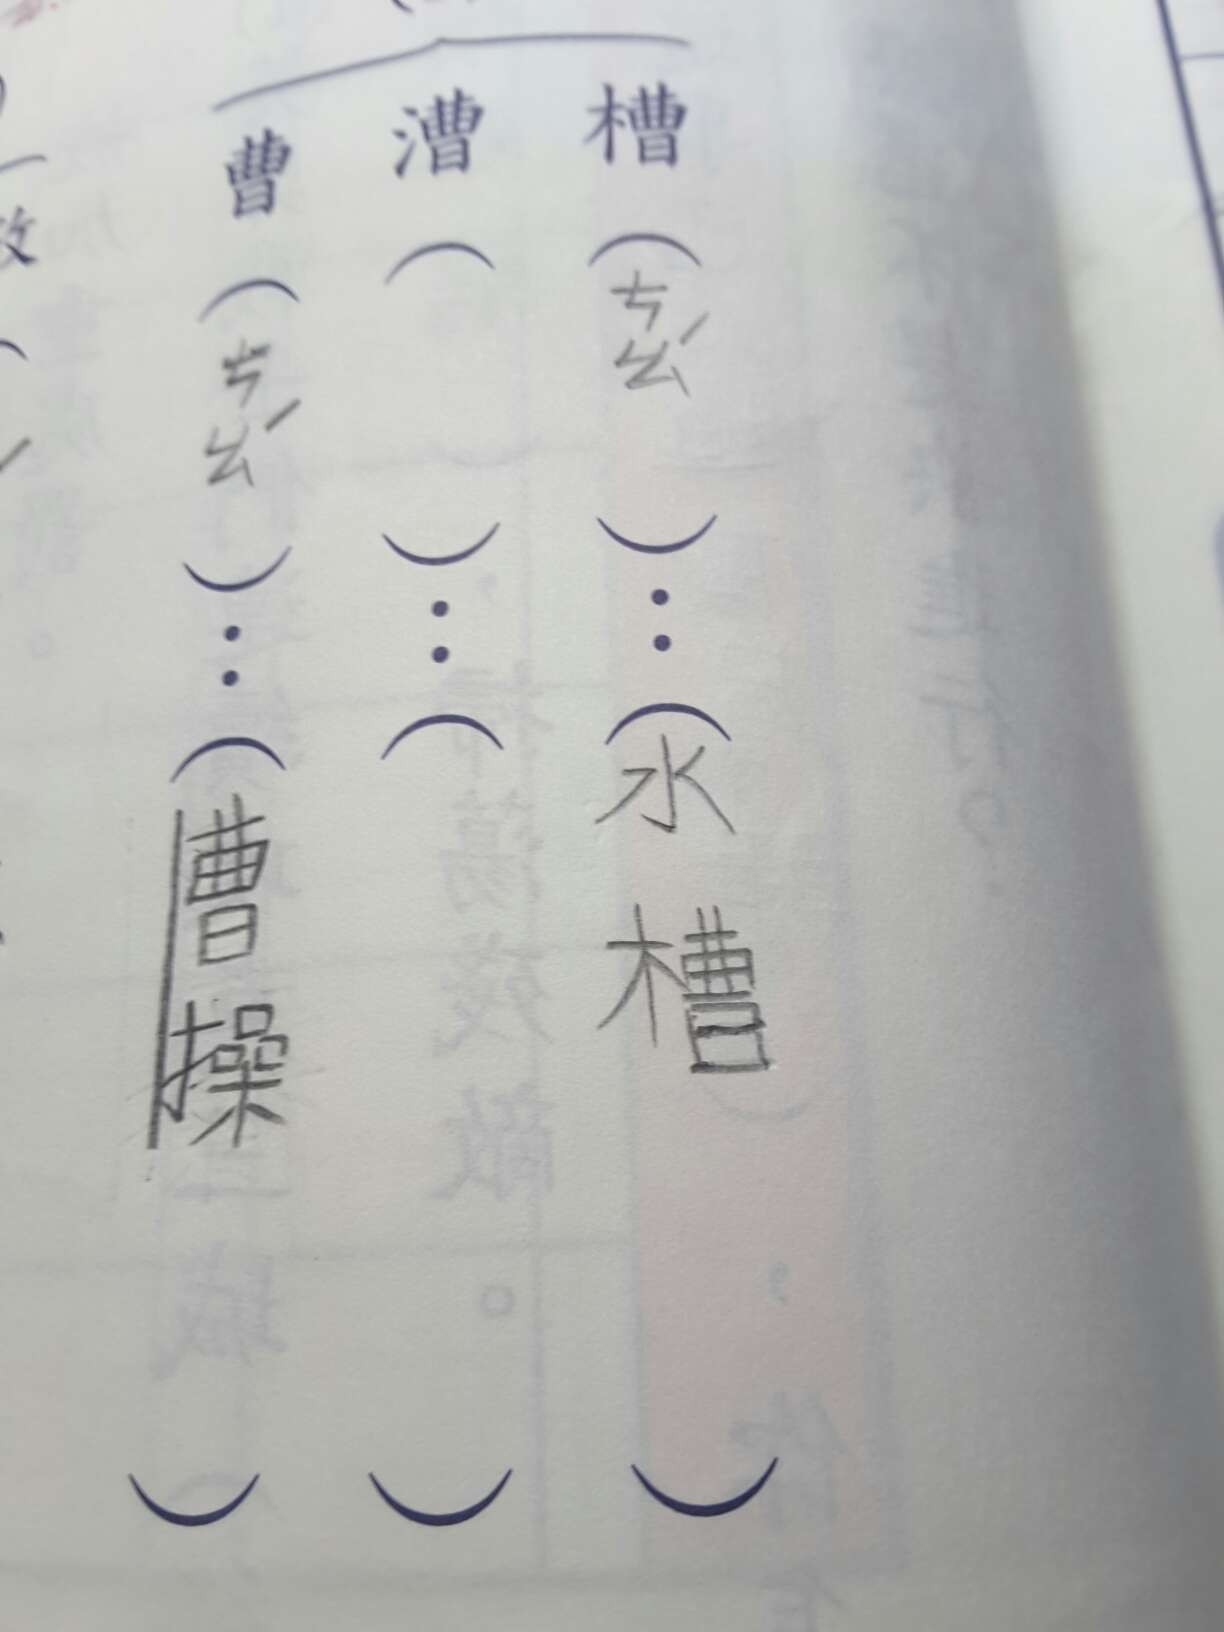 槽（ㄘㄠˊ）：（水槽）
漕（　）：（　）
曹（ㄘㄠˊ）：（曹操）